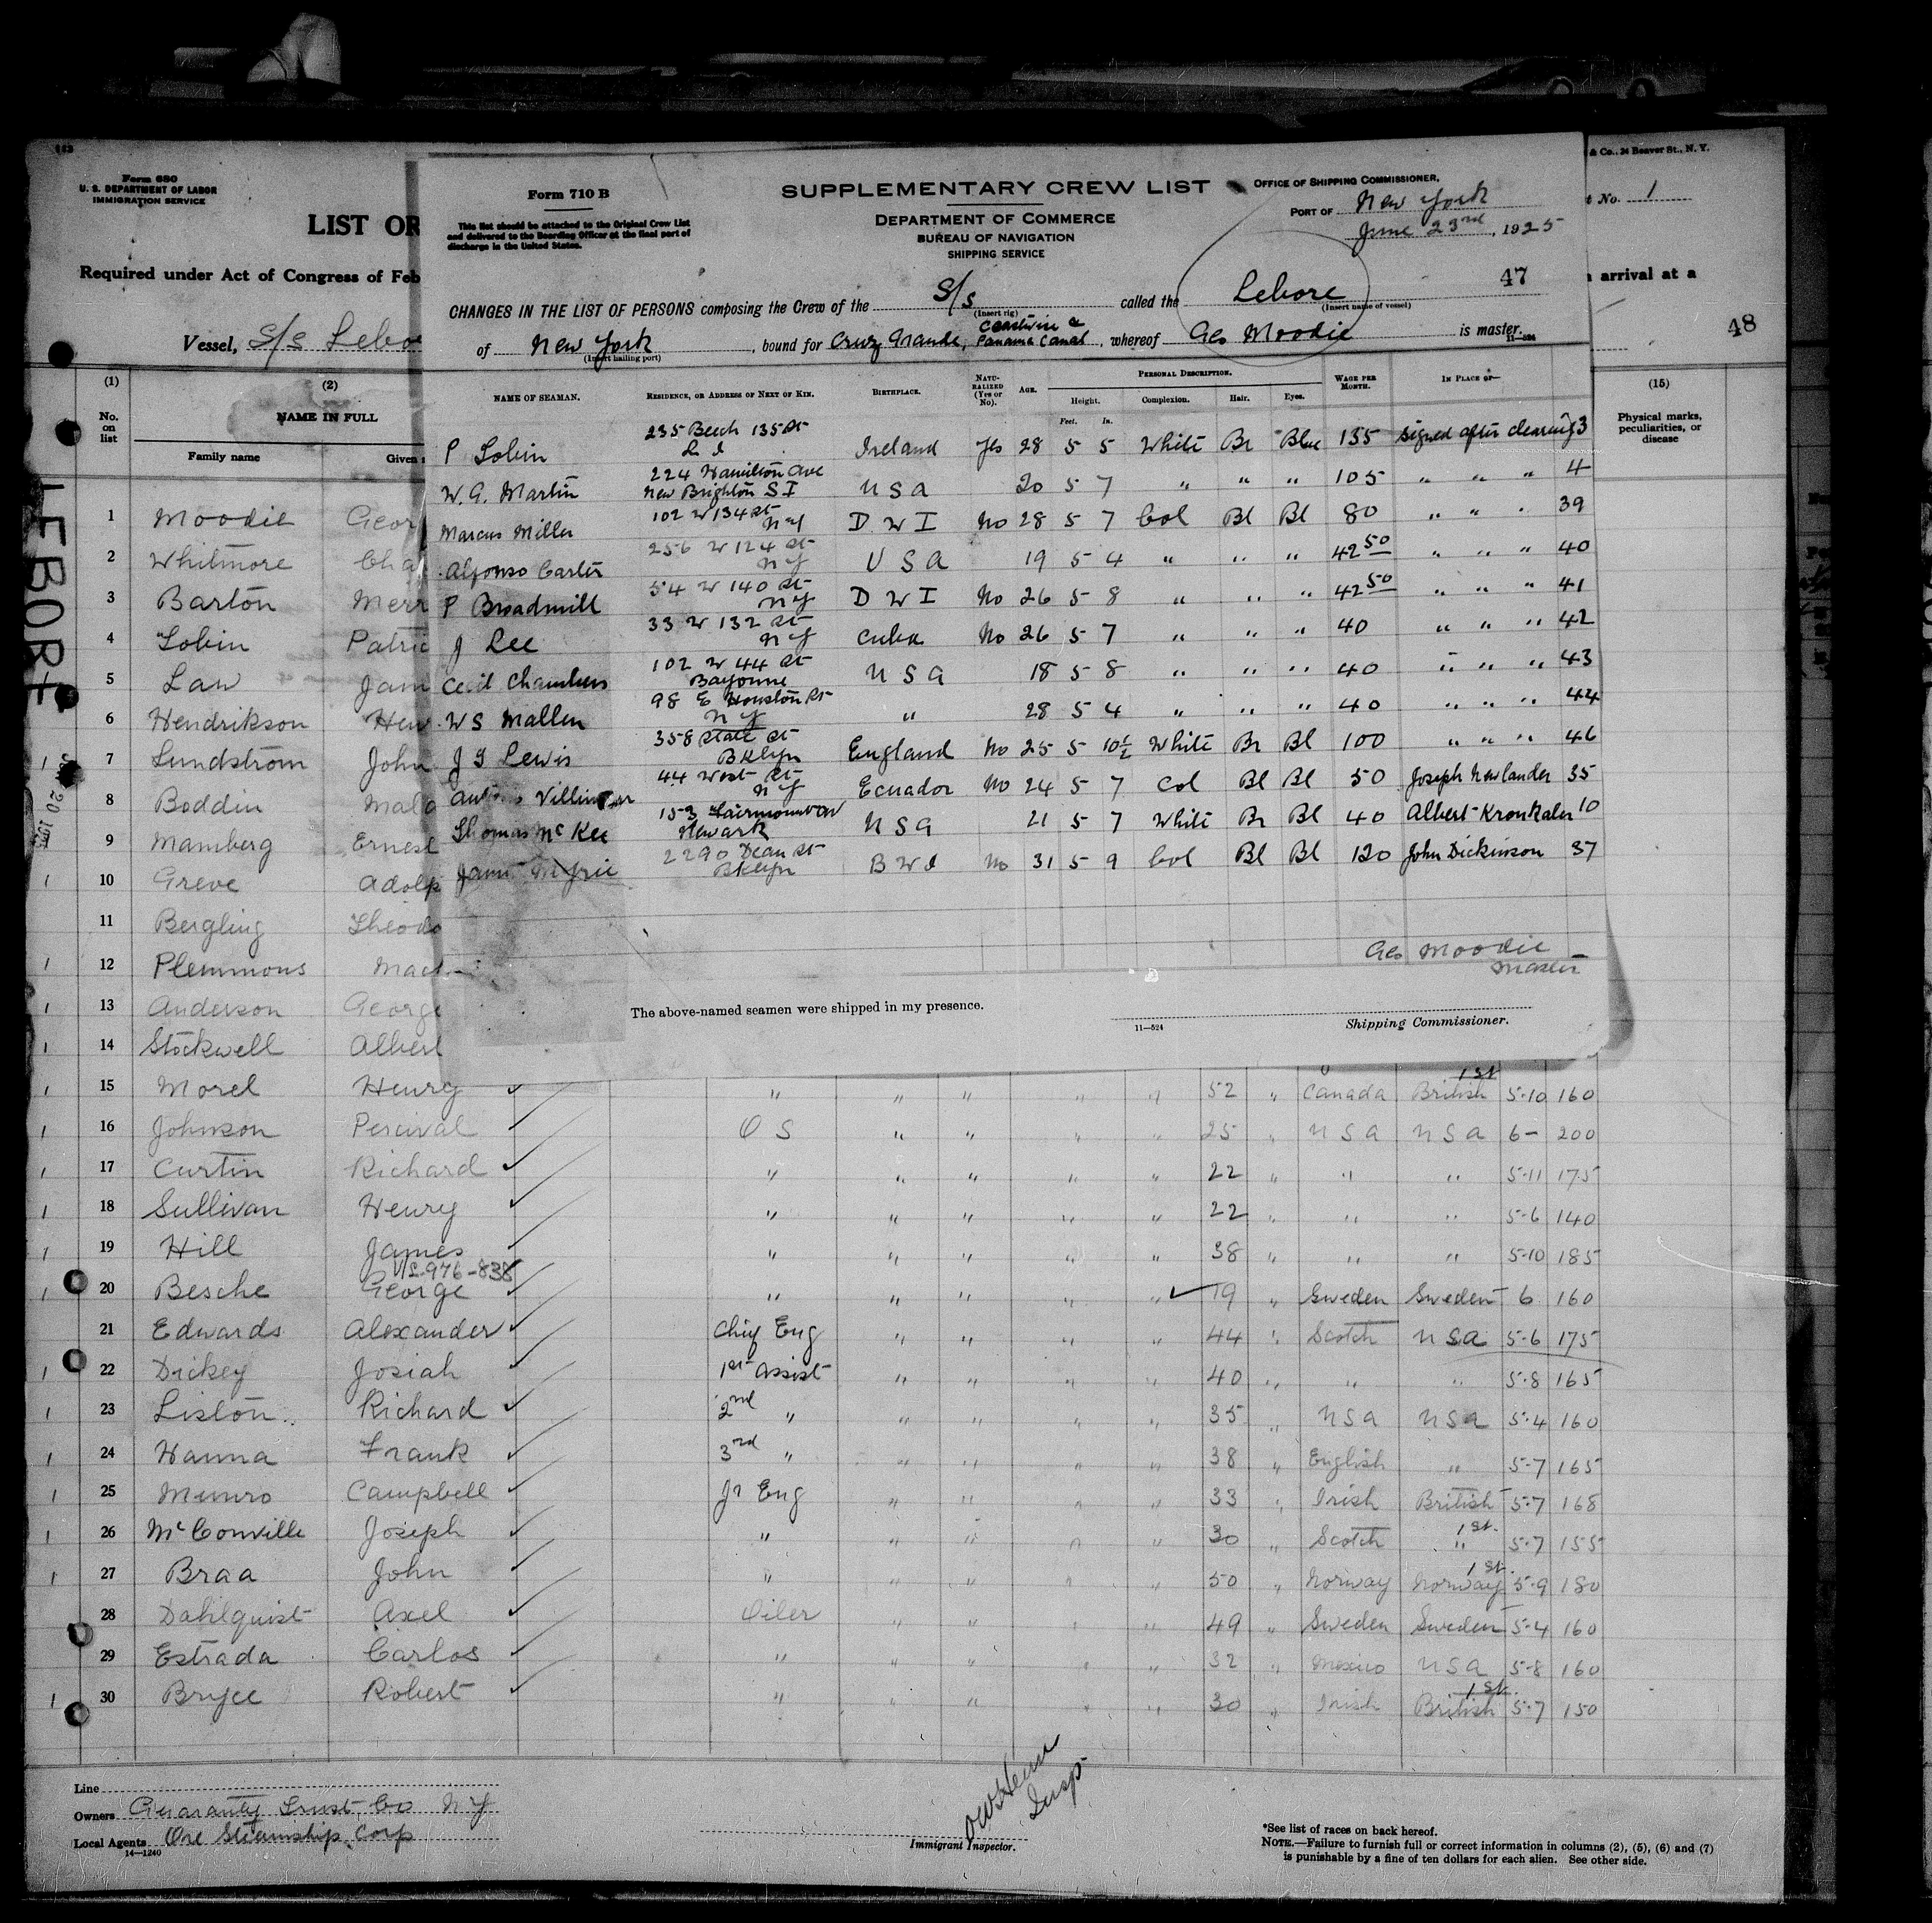 143
Form 680
U. S. DEPARTMENT OF LABOR
IMMIGRATION SERVICE
LIST OR
Required under Act of Congress of Feb
Vessel, S/S Lebo
& Co., 24 Beaver St., N. Y.
t No. 1
arrival at a
48
Form 710 B
This list should be attached to the Original Crew List
and delivered to the Boarding Officer at the final port of
discharge in the United States.
SUPPLEMENTARY CREW LIST
DEPARTMENT OF COMMERCE
BUREAU OF NAVIGATION
SHIPPING SERVICE
OFFICE OF SHIPPING COMMISSIONER,
PORT OF New York
June 23rd, 1925
47
CHANGES IN THE LIST OF PERSONS composing the Crew of the S/s called the Lebore
(Insert rig) (Insert name of vessel)
of New York, bound for Cruz Grande, Coastwise & Panama Canal, whereof Geo Moodie is master.
(Insert hailing port) 11—524
NAME OF SEAMAN. RESIDENCE, OR ADDRESS OF NEXT OF KIN. BIRTHPLACE. NATURALIZED (Yes or No). AGE. PERSONAL DESCRIPTION. Height. Feet. In. Complexion. Hair. Eyes. WAGE PER MONTH. IN PLACE OF—
P Lobin 235 Beech 135 St L I Ireland Yes 28 5 5 White Br Blue 135 signed after clearing 3
W. G. Martin 224 Hamilton Ave New Brighton S I U S A 20 5 7 " " " 105 " " " 4
Marcus Miller 102 W 134 St N Y D W I No 28 5 7 Col Bl Bl 80 " " " 39
Alfonso Carter 256 W 124 St N Y U S A 19 5 4 " " " 42 50 " " " 40
P Broadmill 54 W 140 St N Y D W I No 26 5 8 " " " 42 50 " " " 41
J Lee 33 W 132 St N Y Cuba No 26 5 7 " " " 40 " " " 42
Cecil Chambers 102 W 44 St Bayonne U S A 18 5 8 " " " 40 " " " 43
W S Mallen 98 E Houston St N Y " 28 5 4 " " " 40 " " " 44
J G Lewis 358 State St Bklyn England No 25 5 10½ White Br Bl 100 " " " 46
44 West St N Y Ecuador No 24 5 7 Col Bl Bl 50 Joseph Newlander 35
Thomas McKee 153 Fairmount Av Newark U S A 21 5 7 White Br Bl 40 Albert Kronkaler 10
2290 Dean St Bklyn B W I No 31 5 9 Col Bl Bl 120 John Dickinson 37
Geo Moodie
Master
The above-named seamen were shipped in my presence.
11—524 Shipping Commissioner.
(1) No. on list (2) NAME IN FULL Family name Given
(15) Physical marks, peculiarities, or disease
LEBORE
1 Moodie Geor
2 Whitmore Cha
3 Barton Merr
4 Lobin Patric
5 Law Jam
6 Hendrikson Hen
7 Lundstrom John
8 Boddin Malc
9 Mamberg Ernest
10 Greve Adolp
11 Bergling Theodo
12 Plemmons Mac
13 Anderson George
14 Stockwell Albert
15 Morel Henry " " " " " 52 " Canada 1st British 5-10 160
16 Johnson Percival O S " " " " 25 " U S A U S A 6- 200
17 Curtin Richard " " " " " 22 " " " 5-11 175
18 Sullivan Henry " " " " " 22 " " " 5-6 140
19 Hill James " " " " " 38 " " " 5-10 185
20 Besche George " " " " " 19 " Sweden Sweden 6 160
21 Edwards Alexander Chief Eng " " " " 44 " Scotch U S A 5-6 175
22 Dickey Josiah 1st Assist " " " " 40 " " " 5-8 165
23 Liston Richard 2nd " " " " " 35 " U S A U S A 5-4 160
24 Hanna Frank 3rd " " " " " 38 " English " 5-7 165
25 Munro Campbell Jr Eng " " " " 33 " Irish British 5-7 168
26 McConville Joseph " " " " " 30 " Scotch 1st " 5-7 155
27 Braa John " " " " " 50 " Norway 1st Norway 5-9 180
28 Dahlquist Axel Oiler " " " " 49 " Sweden Sweden 5-4 160
29 Estrada Carlos " " " " " 32 " Mexico U S A 5-8 160
30 Bryce Robert " " " " " 30 " Irish 1st British 5-7 150
Line
Owners Guaranty Trust Co N Y
Local Agents Ore Steamship Corp
14—1240
Insp
Immigrant Inspector.
*See list of races on back hereof.
NOTE.—Failure to furnish full or correct information in columns (2), (5), (6) and (7)
is punishable by a fine of ten dollars for each alien. See other side.